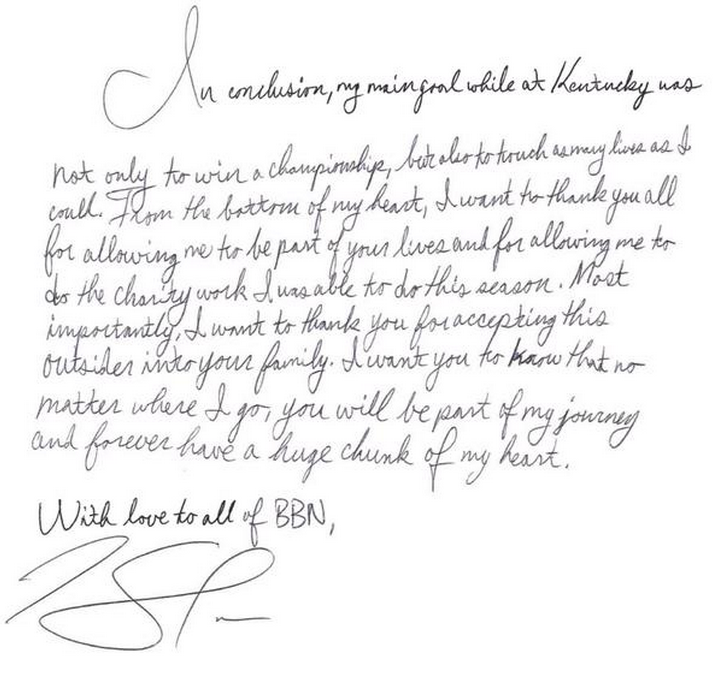 In conclusion, my main goal while at Kentucky was
not only to win a championship, but also to touch as many lives as I
could. From the bottom of my heart, I want to thank you all
for allowing me to be part of your lives and for allowing me to
do the charity work I was able to do this season. Most
importantly, I want to thank you for accepting this
outsider into your family. I want you to know that no
matter where I go, you will be part of my journey
and forever have a huge chunk of my heart.
With love to all of BBN,